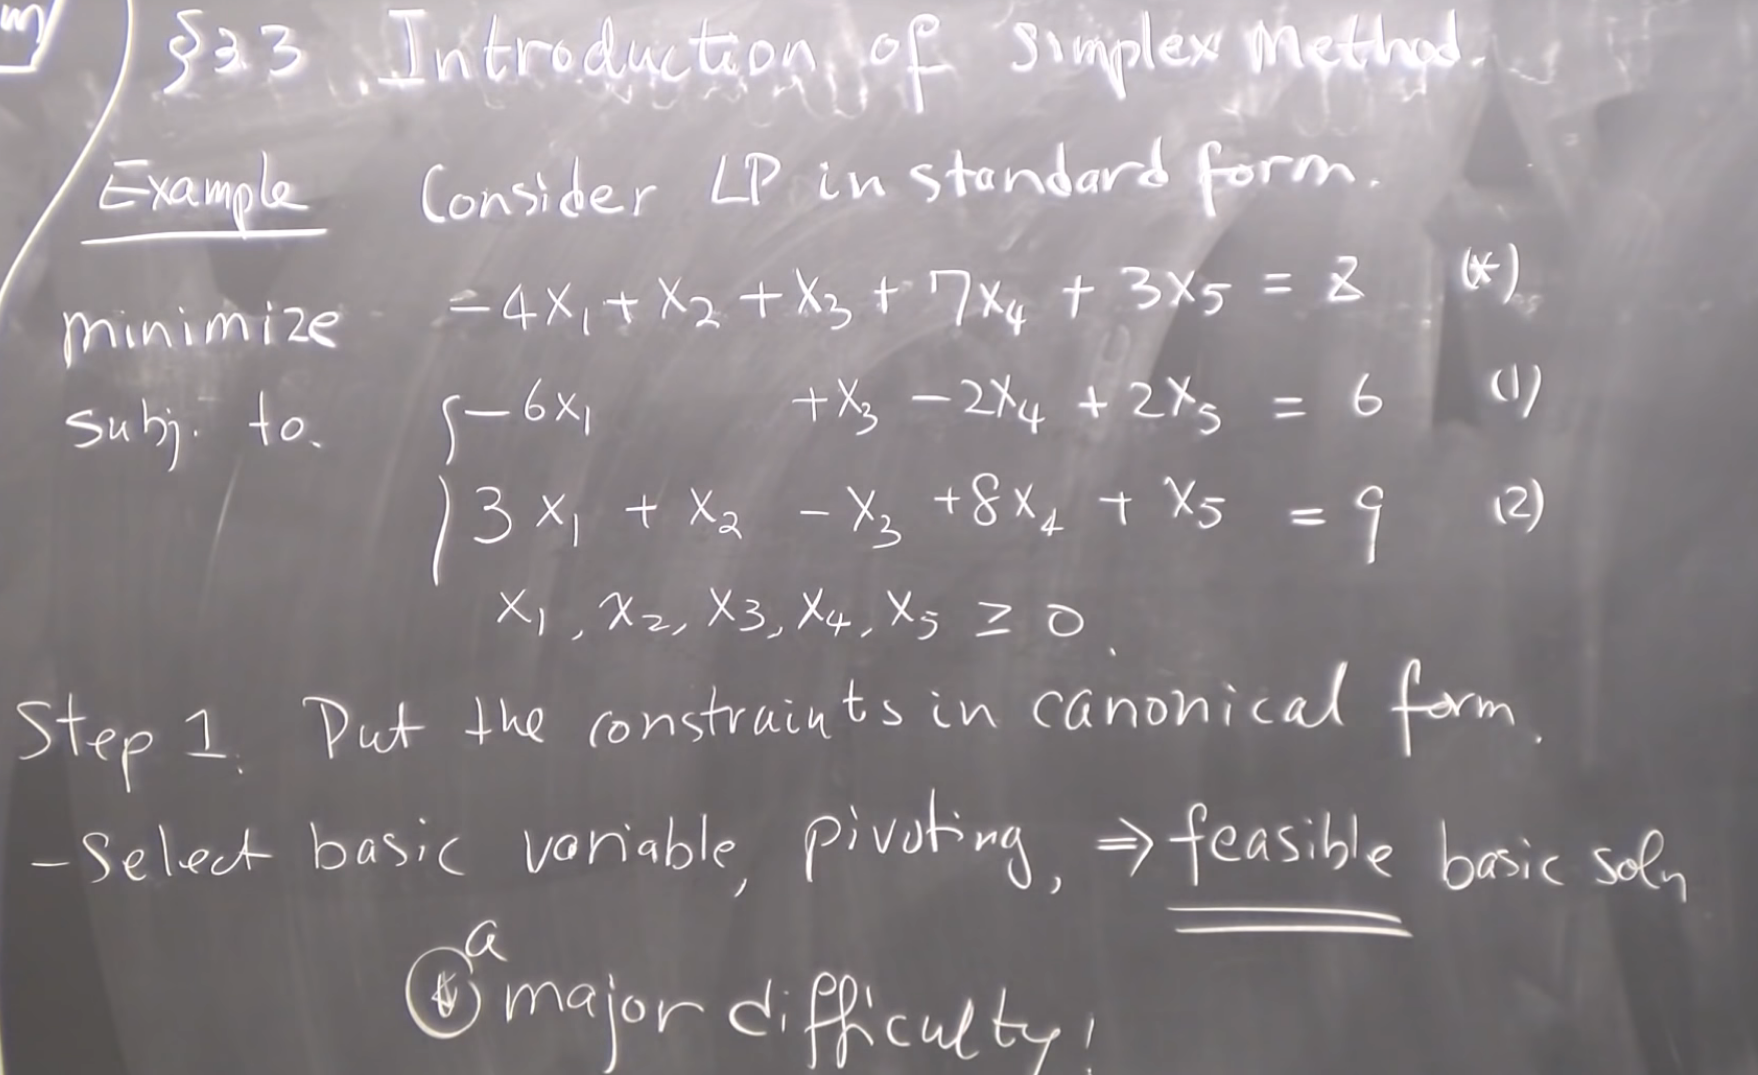 §2.3 Introduction of simplex method.
Example Consider LP in standard form.
minimize -4x₁ + x₂ + x₃ + 7x₄ + 3x₅ = z (*)
subj. to. { -6x₁ + x₃ - 2x₄ + 2x₅ = 6 (1)
3x₁ + x₂ - x₃ + 8x₄ + x₅ = 9 (2)
x₁, x₂, x₃, x₄, x₅ ≥ 0.
Step 1. Put the constraints in canonical form.
- Select basic variable, pivoting, ⇒ feasible basic soln
a
major difficulty!